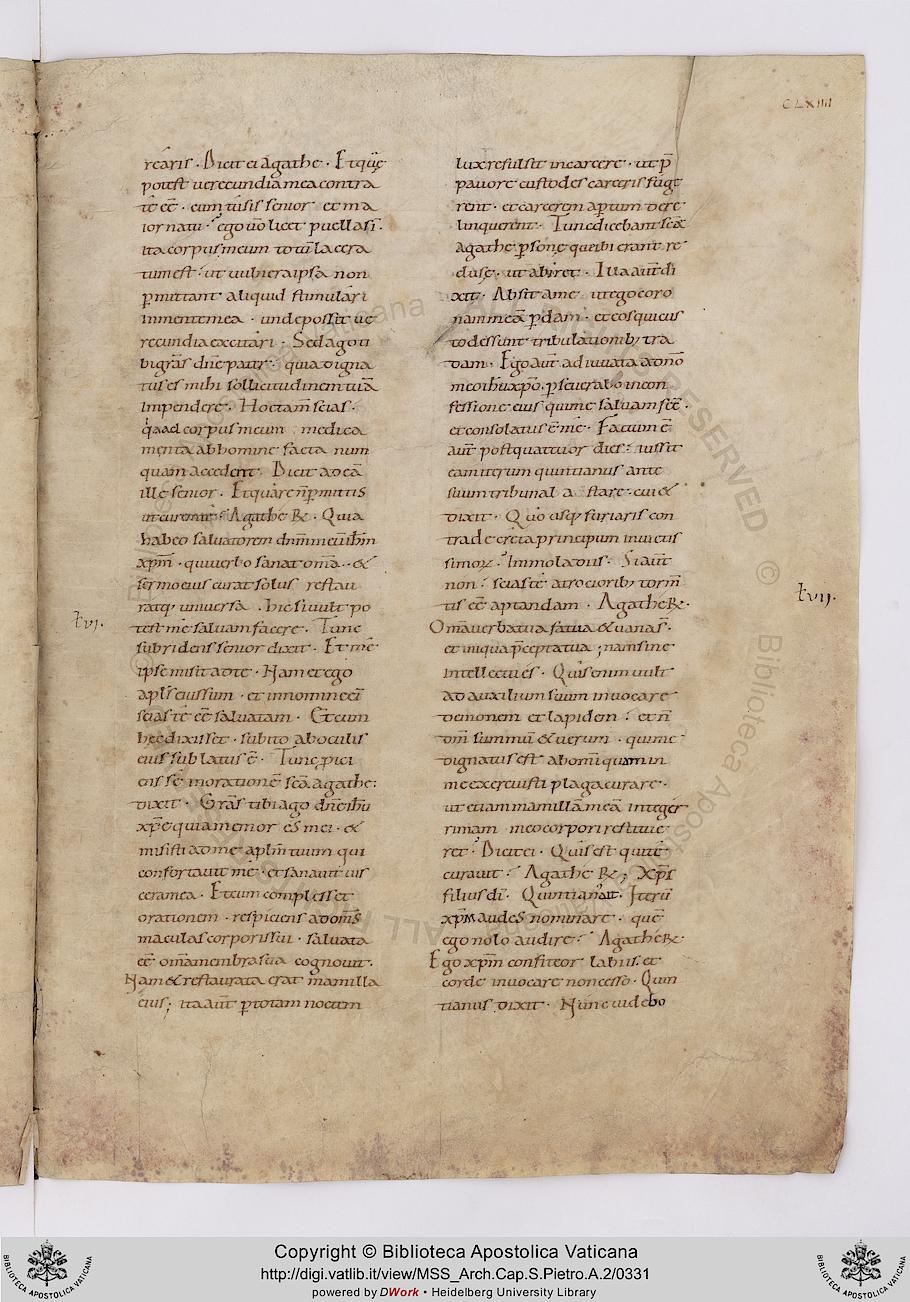 CLXIIII
rearis · Dicit ei agathe · Et quȩ
potest uerecundia mea contra
te eē · cum tu sis senior · et ma
ior natu · ego ũo licet puella sī ·
ita corpus meum totū lacera
tum est · ut uulnera ipsa non
p̱mittant aliquid stimulari
in mente mea · unde possit ue
recundia excitari · Sed ago ti
bi grās dn̄e pater · quia digna
tus es mihi sollicitudinem tuā
impendere · Hoc tam̄ scias ·
qa ad corpus meum medica
menta ab homine facta num
quam accedent · Dicit ad eā
ille senior · Et quare n̄ p̱mittis
ut curem te · Agathe R · Quia
habeo saluatorem dnm̄ meū ihm̄
xpm̄ · qui uerbo sanat om̄a · &
sermo eius curat solus restau
ratq; uniuersa · hic si uult po
test me saluam facere · Tunc
subridens senior dixit · Et me
ipse misit ad te · Nam et ego
apls̄ eius sum · et in nomine ei
scias te eē saluatam · Et cum
hec dixisset · subito ab oculis
eius sublatus ē · Tunc p̱ici
ens se in orationē scā agathe :
dixit · Grās tibi ago dn̄e ihū
xp̄e quia memor es mei · &
misisti ad me aplm̄ tuum qui
confortauit me · et sanauit uis
cera mea · Et cum complesset
orationem · respiciens ad om̄s
maculas corporis sui · saluata
eē om̄a membra sua cognouit ·
Nam & restaurata erat mamilla
eius ; ita aut̄ p̱ totam noctem
lux resulsit in carcere · ut p̄
pauore custodes carceris fuge
rent · et carcerem aptum dere
linquerent · Tunc dicebant scā
agathe p̱sonȩ que ibi erant re
clusȩ · ut abiret · Illa aut̄ di
xit · Absit a me ut ego coro
nam meā p̱dam · et eos qui cus
todes sunt tribulationib; tra
dam · Ego aut̄ adiuuata a dn̄o
meo ihū xp̄o · p̱seuerabo in con
fessione eius qui me saluam fecē ·
et consolatus ē me · Factum ē
aut̄ post quattuor dies · iussit
eam iterum quintianus ante
suum tribunal astare · cui &
dixit · Quo usq; furiaris con
tra decreta principum inuictis
simoꝝ · Immola diis · Si aut̄
non · scias te atrociorib; torm̄
tis eē aptandam · Agathe R ·
Om̄a uerba tua fatua & uana s̄ ·
et iniqua p̄cepta tua ; nam sine
intellectu es · Quis enim uult
ad auxilium suum inuocare
demonem et lapidem · et n̄
dm̄ summū & uerum · qui me
dignatus est ab omī quam in
me exercuisti plaga curare ·
ut etiam mamillā meā integer
rimam meo corpori restitue
ret · Dicit ei · Quis est qui te
curauit · Agathe R ; Xps̄
filius dī · Quintian' ait · Iterū
xpm̄ audes nominare · quē
ego nolo audire · Agathe R ·
Ego xpm̄ confiteor labiis et
corde inuocare non cesso · Quin
tianus dixit · Nunc uidebo
ƚ vi .
ƚ vii .
Copyright © Biblioteca Apostolica Vaticana
http://digi.vatlib.it/view/MSS_Arch.Cap.S.Pietro.A.2/0331
powered by DWork • Heidelberg University Library